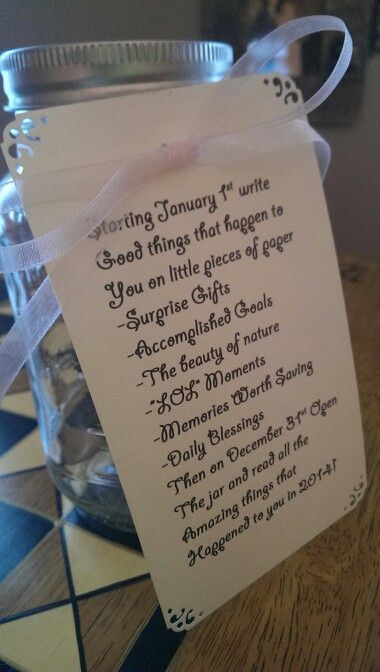 Starting January 1st write
Good things that happen to
You on little pieces of paper
-Surprise Gifts
-Accomplished Goals
-The beauty of nature
-"LOL" Moments
-Memories Worth Saving
-Daily Blessings
Then on December 31st Open
The jar and read all the
Amazing things that
Happened to you in 2014!